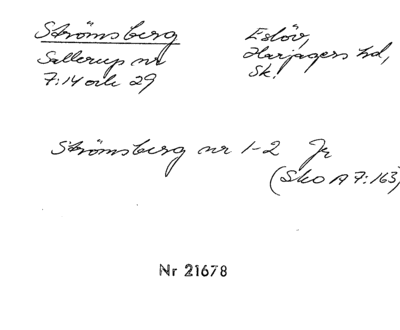 Strömsberg
Sallerup nr
7:14 och 29
Eslöv,
Harjagers hd,
Sk.
Strömsberg nr 1-2 Jr
(SkO A 7:163)
Nr 21678